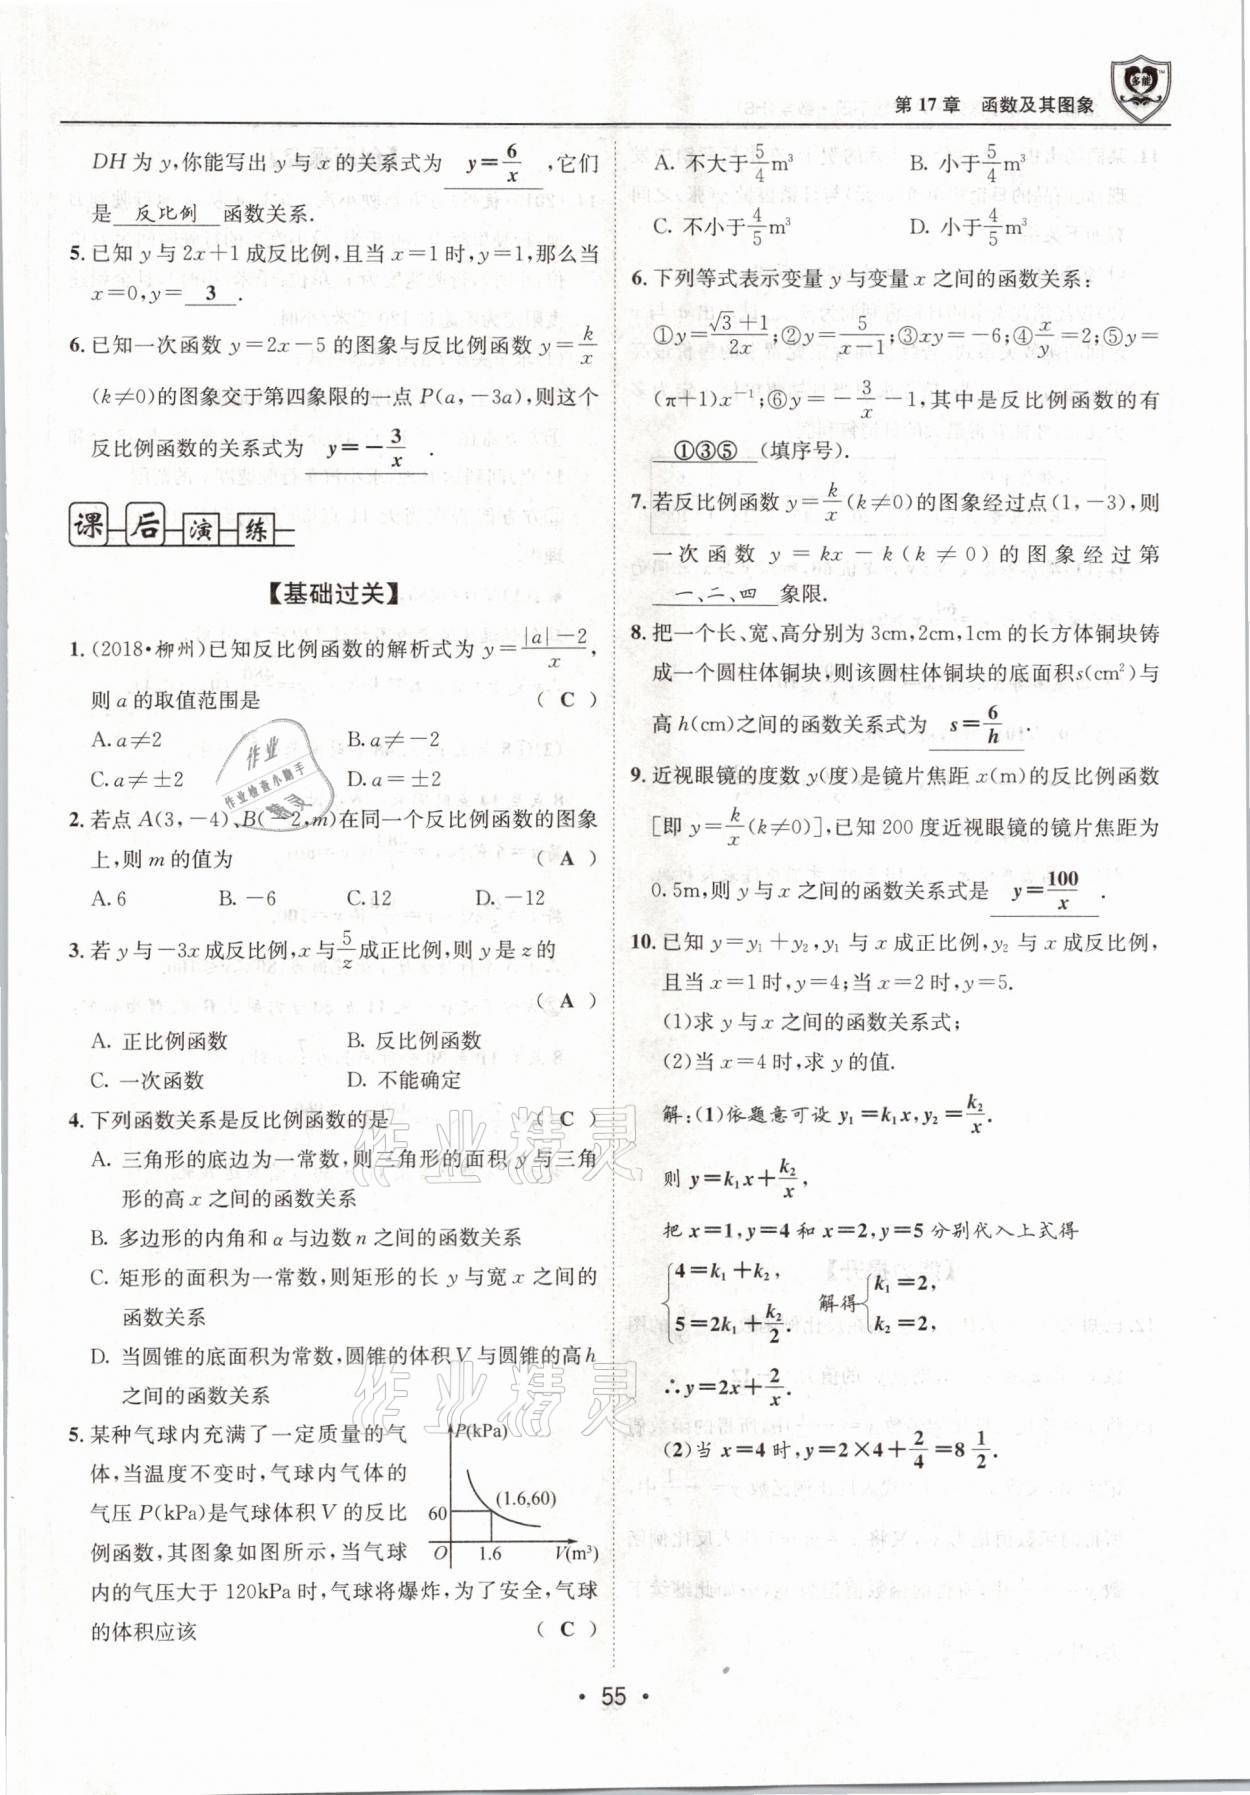 第17章 函数及其图象
多能
DH为y,你能写出y与x的关系式为 y=6/x ,它们
是 反比例 函数关系.
5. 已知y与2x+1成反比例,且当x=1时,y=1,那么当
x=0,y= 3 .
6. 已知一次函数y=2x-5的图象与反比例函数y=k/x
(k≠0)的图象交于第四象限的一点P(a,-3a),则这个
反比例函数的关系式为 y=-3/x .
课后演练
【基础过关】
1. (2018·柳州)已知反比例函数的解析式为y=(|a|-2)/x,
则a的取值范围是 ( C )
A. a≠2 B. a≠-2
C. a≠±2 D. a=±2
2. 若点A(3,-4)、B(-2,m)在同一个反比例函数的图象
上,则m的值为 ( A )
A. 6 B. -6 C. 12 D. -12
3. 若y与-3x成反比例,x与5/z成正比例,则y是z的
( A )
A. 正比例函数 B. 反比例函数
C. 一次函数 D. 不能确定
4. 下列函数关系是反比例函数的是 ( C )
A. 三角形的底边为一常数,则三角形的面积y与三角
形的高x之间的函数关系
B. 多边形的内角和α与边数n之间的函数关系
C. 矩形的面积为一常数,则矩形的长y与宽x之间的
函数关系
D. 当圆锥的底面积为常数,圆锥的体积V与圆锥的高h
之间的函数关系
5. 某种气球内充满了一定质量的气
体,当温度不变时,气球内气体的
气压P(kPa)是气球体积V的反比
例函数,其图象如图所示,当气球
内的气压大于120kPa时,气球将爆炸,为了安全,气球
的体积应该 ( C )
P(kPa)
(1.6,60)
60
O 1.6 V(m³)
A. 不大于5/4m³ B. 小于5/4m³
C. 不小于4/5m³ D. 小于4/5m³
6. 下列等式表示变量y与变量x之间的函数关系:
①y=(√3+1)/2x;②y=5/(x-1);③xy=-6;④x/y=2;⑤y=
(π+1)x⁻¹;⑥y=-3/x-1,其中是反比例函数的有
①③⑤ (填序号).
7. 若反比例函数y=k/x(k≠0)的图象经过点(1,-3),则
一次函数y=kx-k(k≠0)的图象经过第
一、二、四 象限.
8. 把一个长、宽、高分别为3cm,2cm,1cm的长方体铜块铸
成一个圆柱体铜块,则该圆柱体铜块的底面积s(cm²)与
高h(cm)之间的函数关系式为 s=6/h .
9. 近视眼镜的度数y(度)是镜片焦距x(m)的反比例函数
[即y=k/x(k≠0)],已知200度近视眼镜的镜片焦距为
0.5m,则y与x之间的函数关系式是 y=100/x .
10. 已知y=y₁+y₂,y₁与x成正比例,y₂与x成反比例,
且当x=1时,y=4;当x=2时,y=5.
(1)求y与x之间的函数关系式;
(2)当x=4时,求y的值.
解:(1)依题意可设y₁=k₁x,y₂=k₂/x.
则y=k₁x+k₂/x,
把x=1,y=4和x=2,y=5分别代入上式得
{4=k₁+k₂, 解得{k₁=2,
5=2k₁+k₂/2. k₂=2,
∴y=2x+2/x.
(2)当x=4时,y=2×4+2/4=8 1/2.
作业
作业检查小助手
精灵
作业精灵
作业精灵
· 55 ·